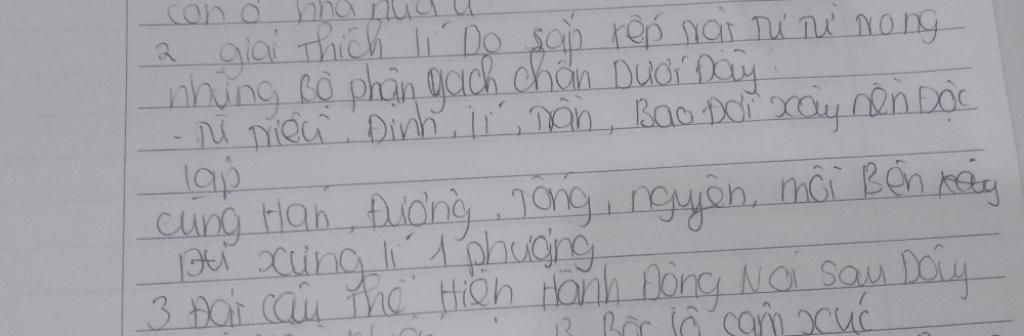 con ở nhà nữa ư
2 giải thích lí Do sắp xếp Trật Tự Từ Trong
những Bộ phận gạch chân Dưới Đây:
- Từ Triệu, Đinh, lí, Trần, Bao Đời xây nên Độc
lập
cùng Hán, Đường, Tống, nguyên, mỗi Bên xây
xưng 1 phương
3 Đặt câu Thể Hiện Hành Động Nói sau Đây
B. Bộc lộ cảm xúc